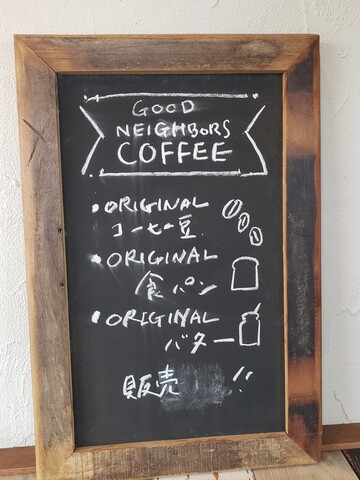 GOOD
NEIGHBORS
COFFEE
• ORIGINAL
コーヒー豆
• ORIGINAL
食パン
• ORIGINAL
バター
販売 !!